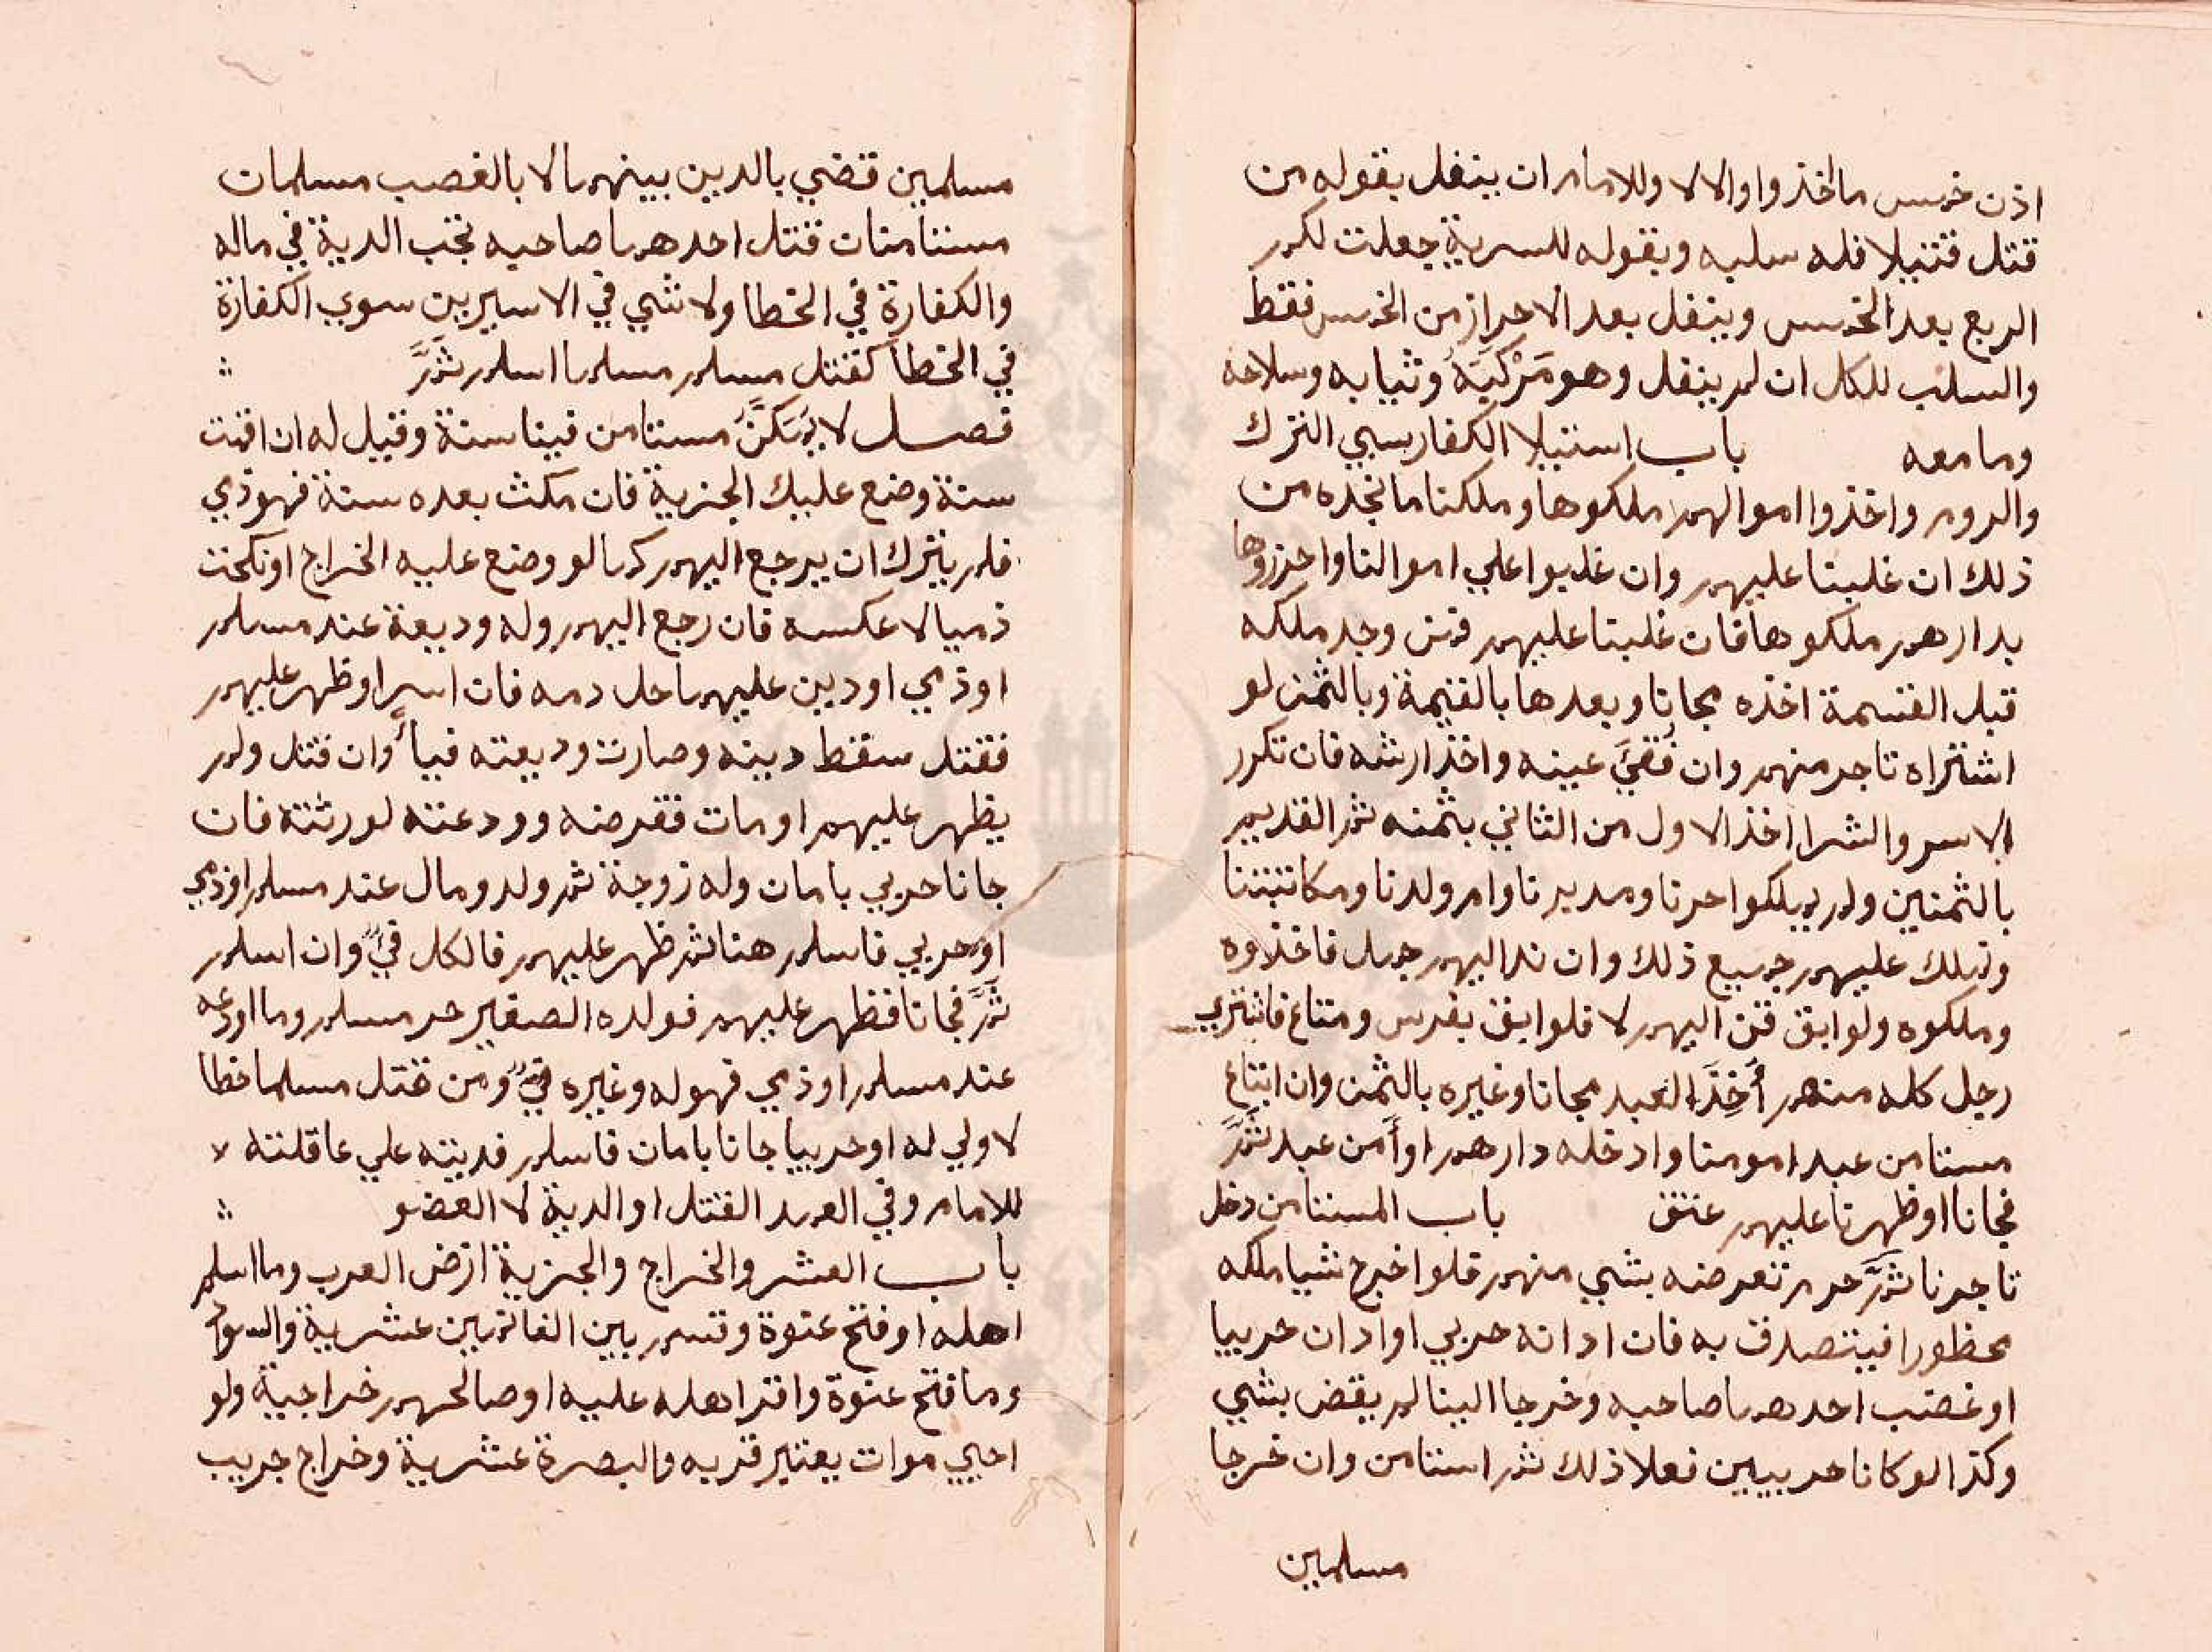 اذن خمس ما اخذوا والا لا وللامام ان ينفل بقوله من
قتل قتيلا فله سلبه وبقوله للسرية جعلت لكم
الربع بعد الخمس وينفل بعد الاحراز من الخمس فقط
والسلب للكل ان لم ينفل وهو مَرْكَبَهُ وثيابه وسلاحه
وما معه باب استيلا الكفار سبي الترك
والروم واخذوا اموالهم ملكوها وملكنا ما نجده من
ذلك ان غلبنا عليهم وان غلبوا علي اموالنا واحرزوها
بدارهم ملكوها فان غلبنا عليهم فمن وجد ملكه
قبل القسمة اخذه مجانا وبعدها بالقيمة وبالثمن لو
اشتراه تاجر منهم وان فُقيَ عينه واخذ ارشه فان تكرر
الاسر والشرا اخذ الاول من الثاني بثمنه ثم القديم
بالثمنين ولم يملكوا حرنا ومدبرنا وام ولدنا ومكاتبنا
ونملك عليهم جميع ذلك وان ند اليهم جمل فاخذوه
وملكوه ولو ابق قن اليهم لا فلو ابق بفرس ومتاع فاشتري
رجل كله منهم أَخِذَ العبد مجانا وغيره بالثمن وان ابتاع
مستامن عبدا مومنا وادخله دارهم او أَمن عبد ثمَّ
فجانا او ظهرنا عليهم عتق باب المستامن دخل
تاجرنا ثمَّ حرم تعرضه بشي منهم فلو اخرج شيا ملكه
محظورا فيتصدق به فان ادانه حربي او ادان حربيا
او غصب احدهما صاحبه وخرجا الينا لم يقض بشي
وكذا لو كانا حربيين فعلا ذلك ثم استامن وان خرجا
مسلمين
مسلمين قضي بالدين بينهما لا بالغصب مسلمان
مستامنان قتل احدهما صاحبه تجب الدية في ماله
والكفارة في الخطا ولا شي في الاسيرين سوي الكفارة
في الخطا كقتل مسلم مسلما اسلم ثمَّ
فصل لا يُمَكَّنُ مستامن فينا سنة وقيل له ان اقمت
سنة وضع عليك الجزية فان مكث بعده سنة فهو ذمي
فلم يترك ان يرجع اليهم كما لو وضع عليه الخراج او نكحت
ذميا لا عكسه فان رجع اليهم وله وديعة عند مسلم
او ذمي او دين عليهما حل دمه فان اسر او ظهر عليهم
فقتل سقط دينه وصارت وديعته فيأ وان قتل ولم
يظهر عليهم او مات فقرضه ووديعته لورثته فان
جانا حربي بامان وله زوجة ثم ولد ومال عند مسلم او ذمي
او حربي فاسلم هنا ثم ظهر عليهم فالكل فيٌ وان اسلم
ثمَّ فجانا فظهر عليهم فولده الصغير حر مسلم وما اودعه
عند مسلم او ذمي فهو له وغيره فيٌ ومن قتل مسلما خطا
لا ولي له او حربيا جانا بامان فاسلم فديته علي عاقلته
للامام وفي العمد القتل او الدية لا العفو
باب العشر والخراج والجزية ارض العرب وما اسلم
اهله او فتح عنوة وقسم بين الغانمين عشرية والسواد
وما فتح عنوة واقر اهله عليه او صالحهم خراجية ولو
احيي موات يعتبر قربه والبصرة عشرية وخراج جريب